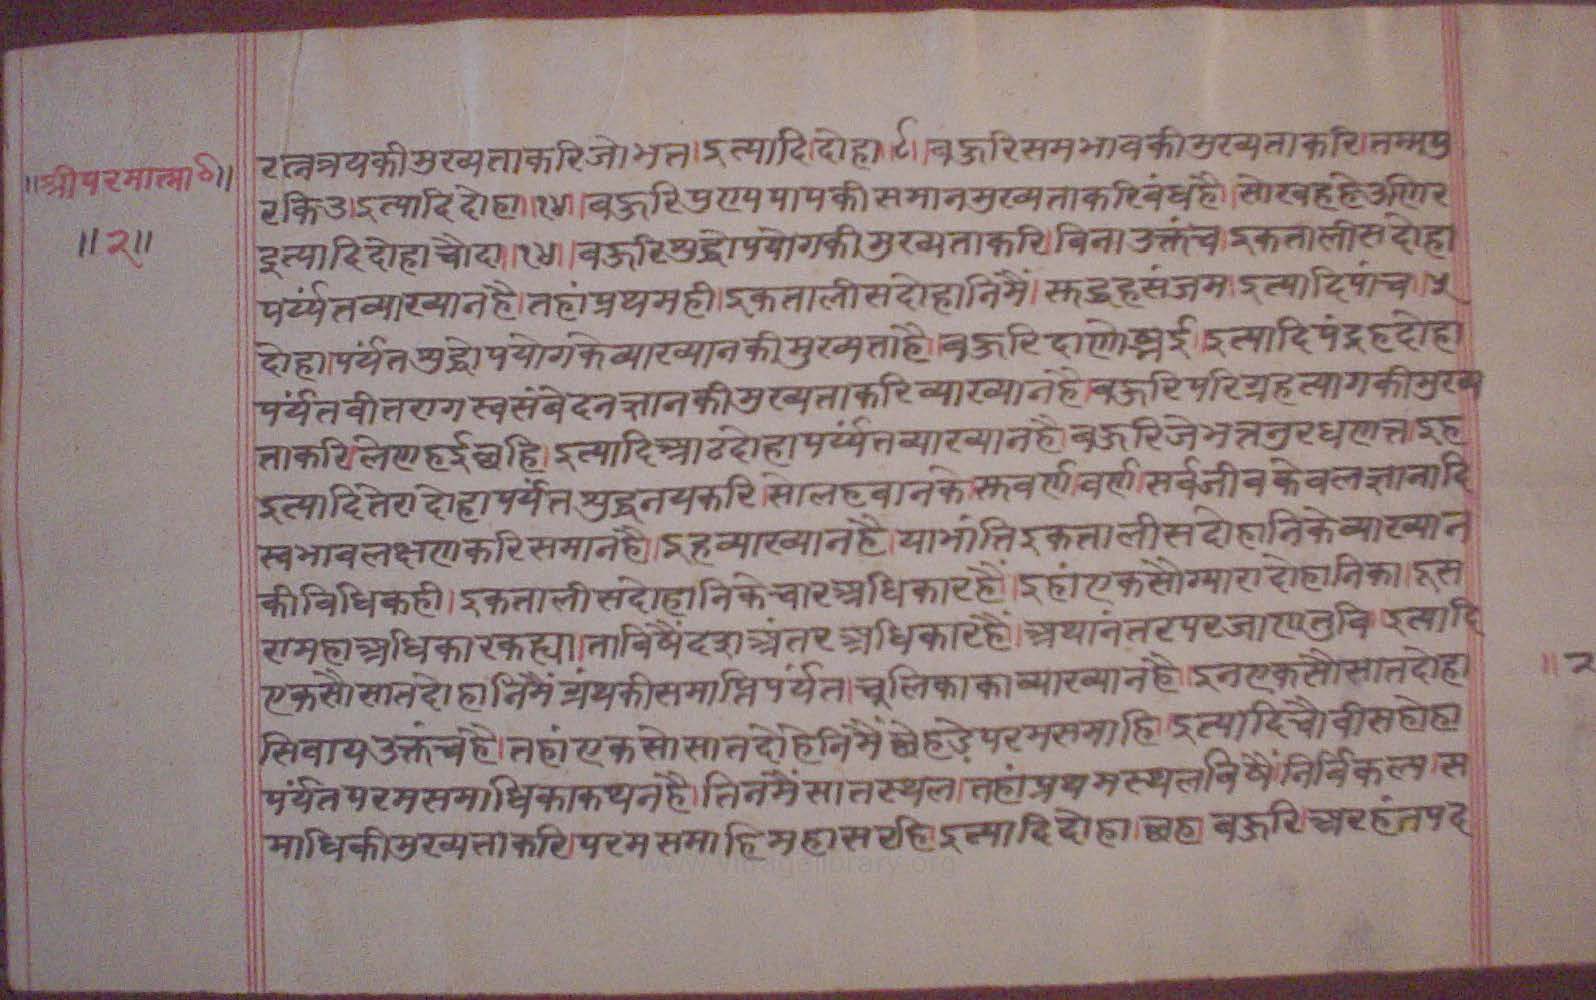 ॥श्रीपरमात्मा०॥
॥२॥
रत्नत्रयकीमुख्यताकरिजोभत्त।इत्यादि।दोहा।८।बहुरिसमभावकीमुख्यताकरि।तम्मपु
रकिउ।इत्यादिदोहा॥१४॥बहुरिपुण्यपापकीसमानमुख्यताकरिबंधहै।
इत्यादिदोहाचौदा॥१४॥बहुरिशुद्धोपयोगकीमुख्यताकरि।बिनाउक्तंच।इकतालीसदोहा
पर्य्यंतव्याख्यानहै।तहांप्रथमही।इकतालीसदोहानिमैं।सुद्धहसंजम।इत्यादिपांच।५
दोहा।पर्यंतशुद्धोपयोगकेव्याख्यानकीमुख्यताहै।बहुरि।इत्यादिपंद्रहदोहा
पर्यंतवीतरागस्वसंवेदनज्ञानकीमुख्यताकरिव्याख्यानहै।बहुरिपरिग्रहत्यागकीमुख्य
ताकरि।लेणहंइछहि।इत्यादिआठदोहापर्य्यंतव्याख्यानहै।बहुरिजेभत्त
इत्यादितेरादोहापर्यंतशुद्धनयकरि।सोलहवानकेसुवर्णवर्ण।सर्वजीवकेवलज्ञानादि
स्वभावलक्षणकरिसमानहै।इहव्याख्यानहै।याभांतिइकतालीसदोहानिकेव्याख्यान
कीविधिकही।इकतालीसदोहानिकेचारअधिकारहैं।इहांएकसौग्यारादोहानिका।दूस
रामहाअधिकारकह्या।ताविषैंदशअंतरअधिकारहैं।अथानंतरपरजाणंतुवि।इत्यादि
एकसौसातदोहानिमैंग्रंथकीसमाप्तिपर्यंत।चूलिकाकाव्याख्यानहै।इनएकसौसातदोहा
सिवायउक्तंचहै।तहांएकसोसातदोहेनिमैंछेहडेपरमसमाहि।इत्यादिचौवीसदोहा
पर्यंतपरमसमाधिकाकथनहै।तिनमैंसातस्थल।तहांप्रथमस्थलविषैंनिर्विकल्प।स
माधिकीमुख्यताकरि।परमसमाहिमहासरहि।इत्यादिदोहा।छह।बहुरिअरहंतपद
॥२